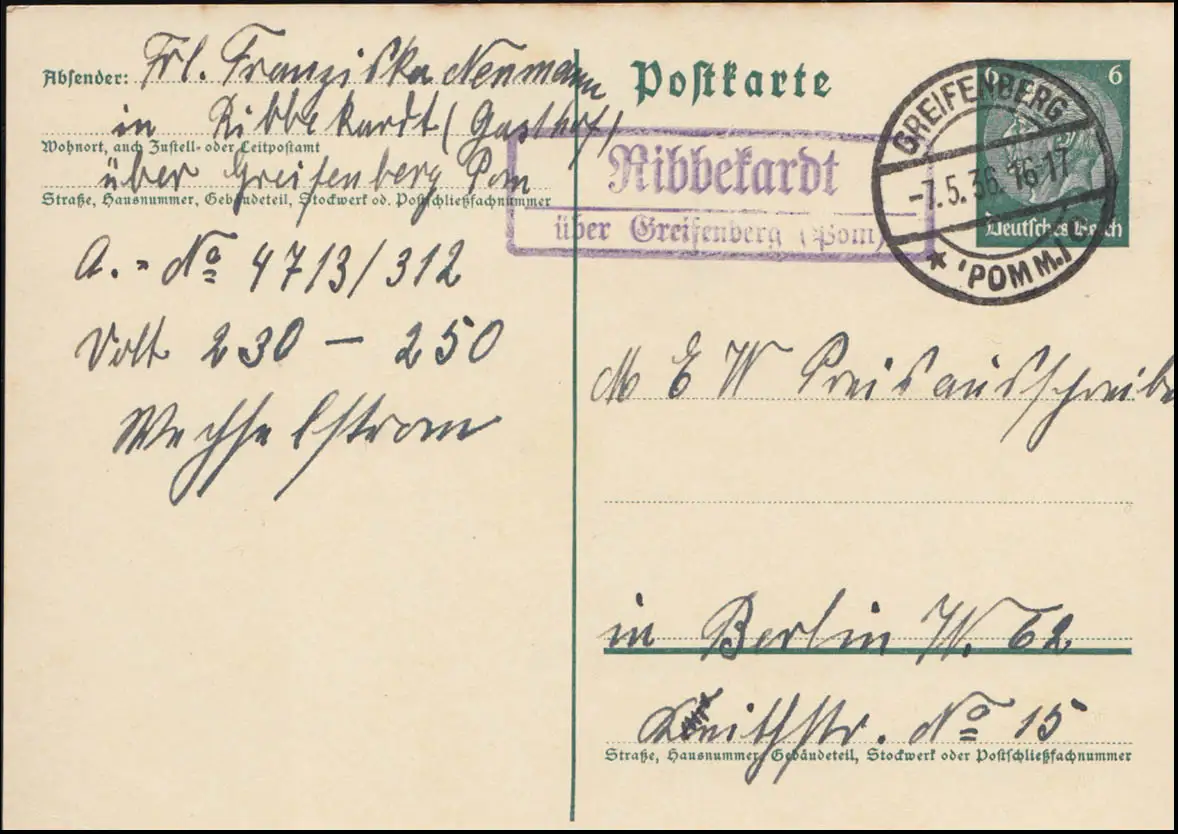 Absender: Frl. Franziska Neumann
in Ribbekardt (Gasthof)
Wohnort, auch Zustell- oder Leitpostamt
über Greifenberg Pom
Straße, Hausnummer, Gebäudeteil, Stockwerk od. Postschließfachnummer
A. = No 4713/312
Volt 230 – 250
Wechselstrom
Postkarte
6
Deutsches Reich
GREIFENBERG
-7.5.36. 16-17
* (POMM.) c
Ribbekardt
über Greifenberg (Pom)
M E W Preisausschreibe
in Berlin W. 62
Keithstr. No 15
Straße, Hausnummer, Gebäudeteil, Stockwerk oder Postschließfachnummer